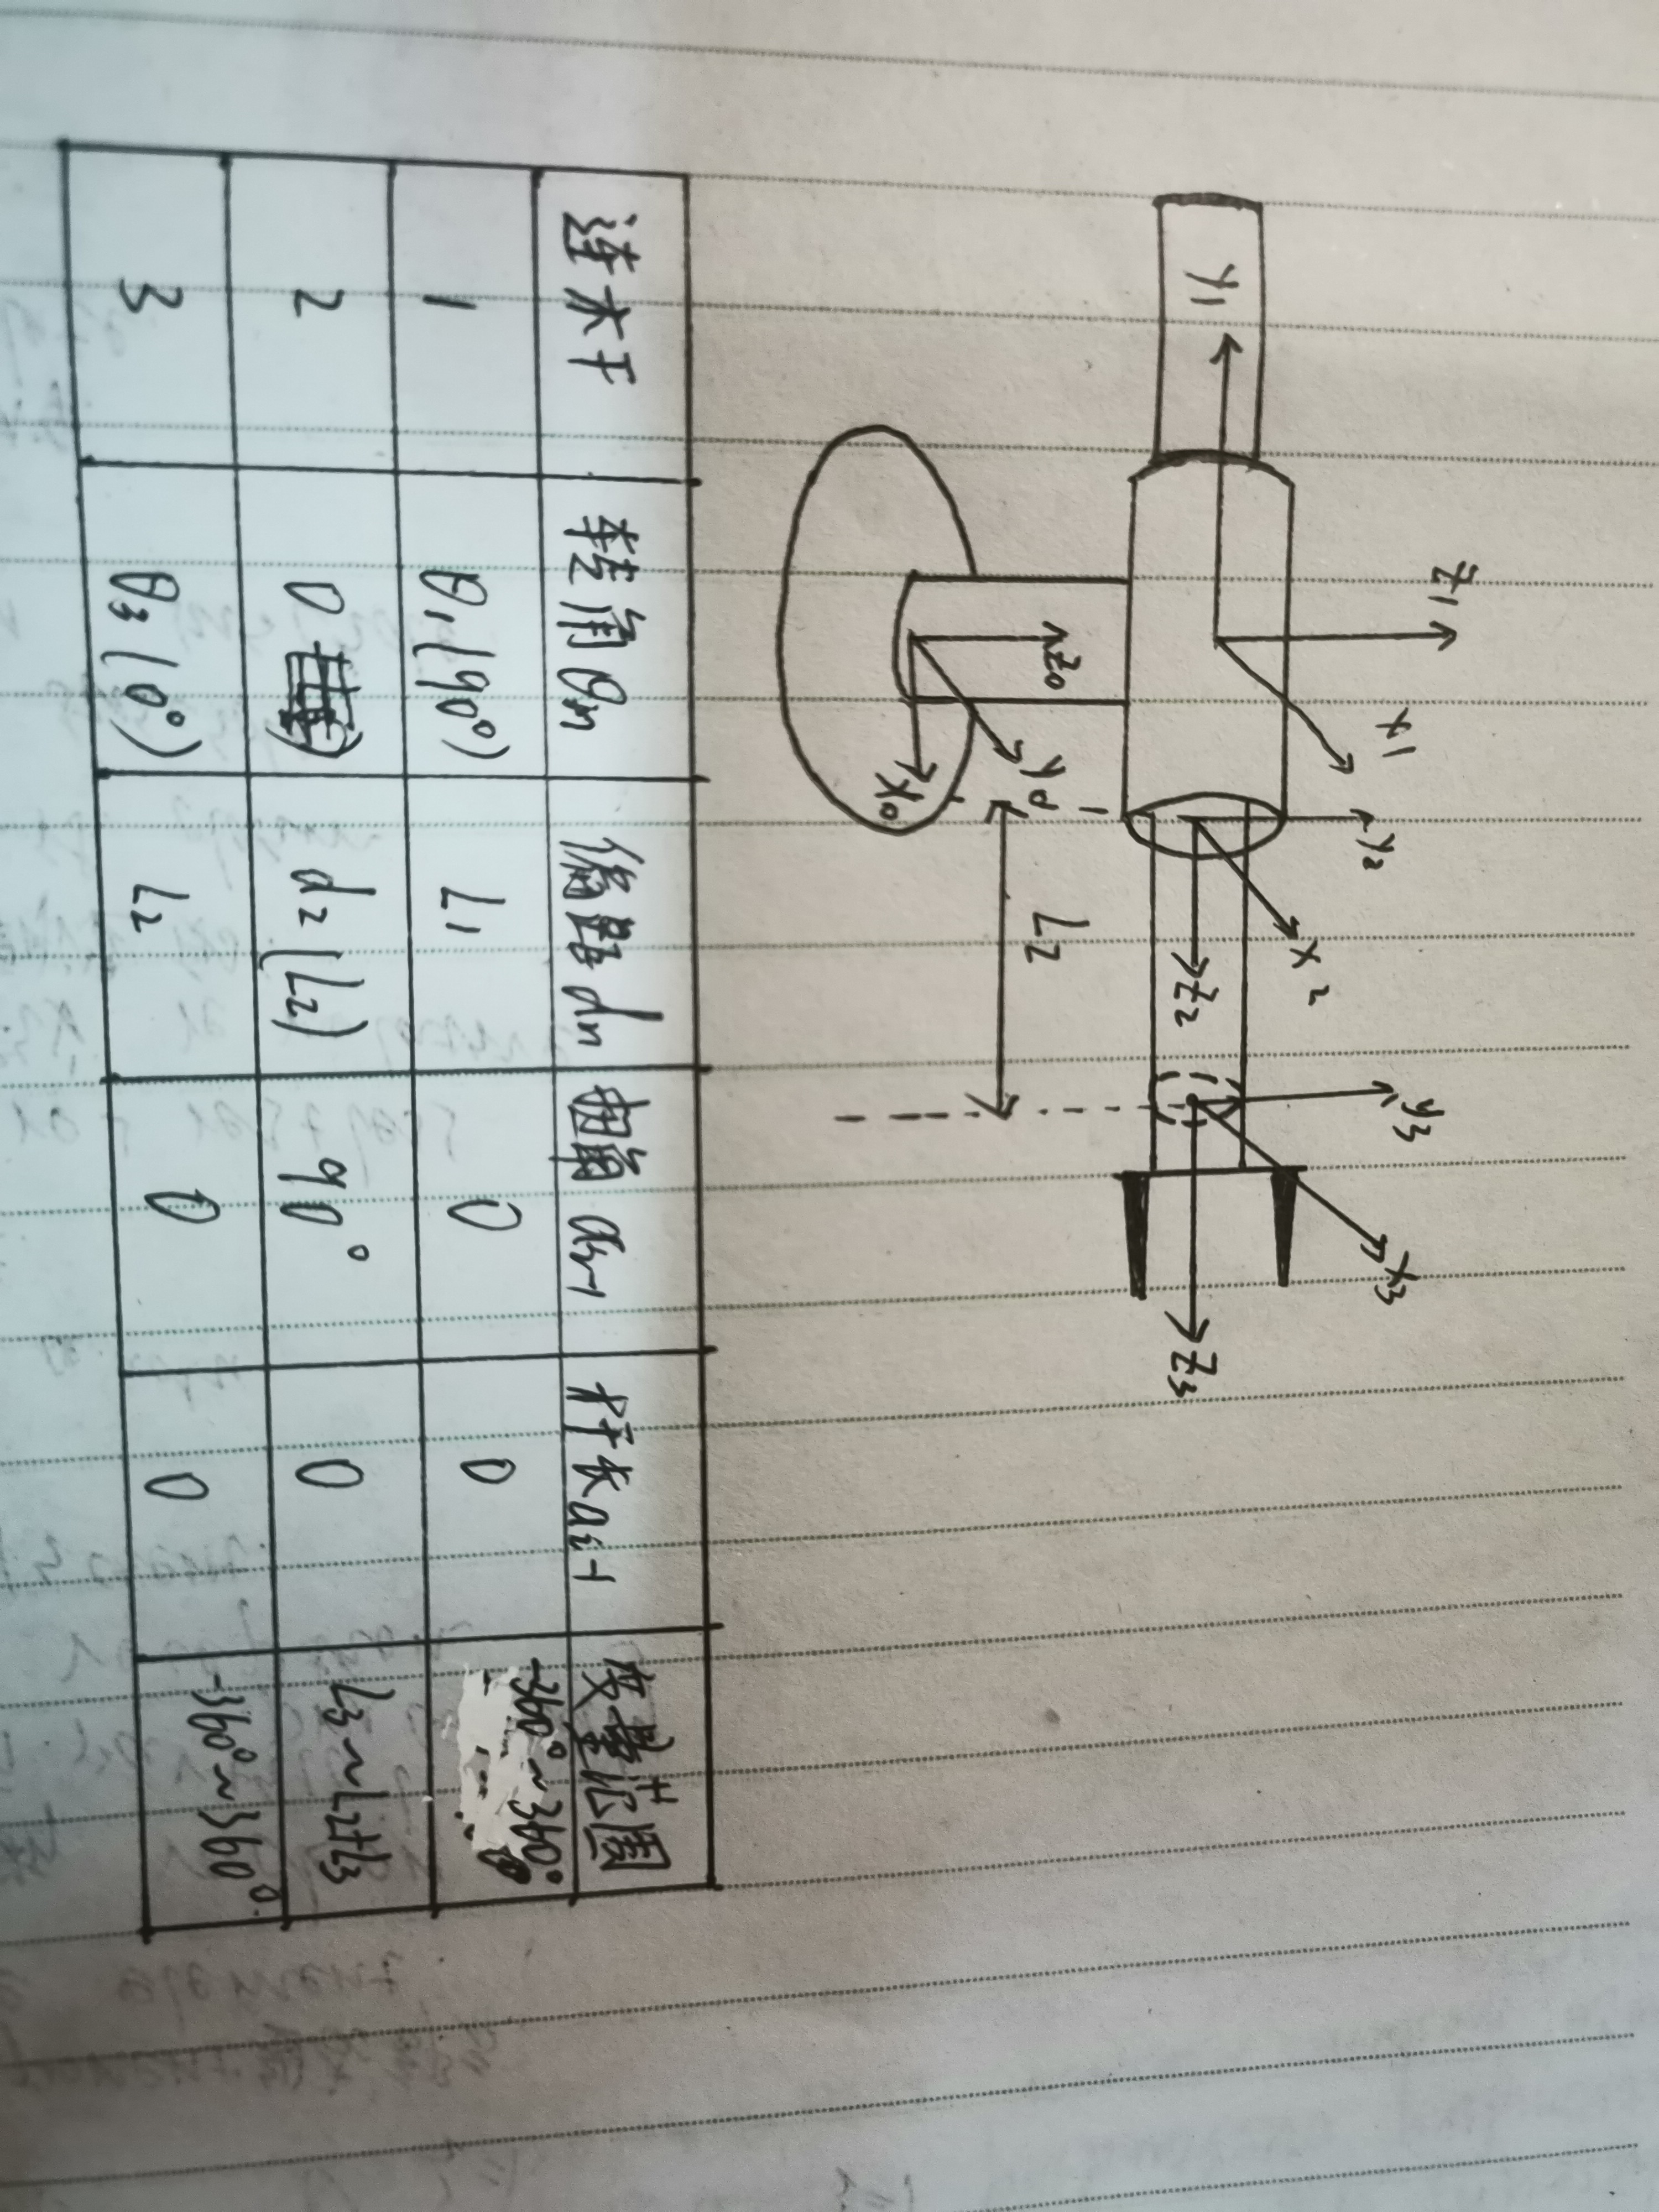 y1
z1
x1
z0
y0
x0
y2
x2
z2
L2
y3
x3
z3
连杆 转角θn 偏距dn 扭角αn-1 杆长an-1 变量范围
1 θ1(90°) L1 0 0 -360°~360°
2 0 d2(L2) 90° 0 L3~L2+L3
3 θ3(0°) L2 0 0 -360°~360°